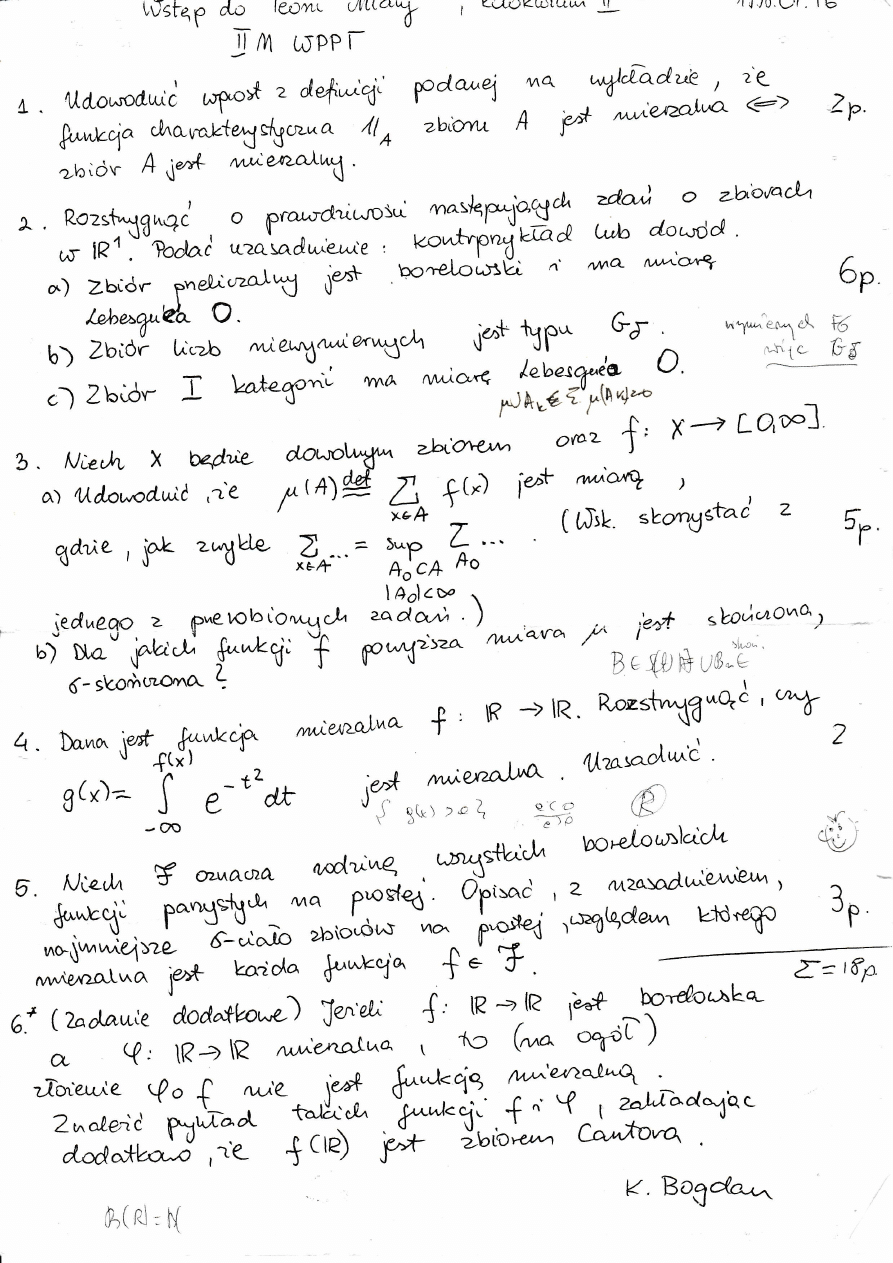 Wstęp do Teorii Miary , Kolokwium II
II M WPPT
1. Udowodnić wprost z definicji podanej na wykładzie, że
funkcja charakterystyczna 1_A zbioru A jest mierzalna <=> 2p.
zbiór A jest mierzalny.
2. Rozstrzygnąć o prawdziwości następujących zdań o zbiorach
w ℝ¹. Podać uzasadnienie : kontrprzykład lub dowód.
a) Zbiór przeliczalny jest borelowski i ma miarę 6p.
Lebesgue'a 0.
b) Zbiór liczb niewymiernych jest typu Gδ. wymiernych Fσ
więc Gδ
c) Zbiór I kategorii ma miarę Lebesgue'a 0.
3. Niech X będzie dowolnym zbiorem oraz f: X → [0,∞].
a) Udowodnić, że μ(A) def= Σ f(x) jest miarą ,
x∈A
gdzie, jak zwykle Σ ... = sup Σ ... . (Wsk. skorzystać z 5p.
x∈A A₀⊂A A₀
|A₀|<∞
jednego z przerobionych zadań.)
b) Dla jakich funkcji f powyższa miara μ jest skończona,
σ-skończona ?
4. Dana jest funkcja mierzalna f : ℝ → ℝ. Rozstrzygnąć, czy
g(x) = ∫_{-∞}^{f(x)} e^{-t²} dt jest mierzalna . Uzasadnić. 2
5. Niech F oznacza rodzinę wszystkich borelowskich
funkcji parzystych na prostej. Opisać, z uzasadnieniem, 3p.
najmniejsze σ-ciało zbiorów na prostej, względem którego
mierzalna jest każda funkcja f ∈ F.
Σ = 18p
6.* (Zadanie dodatkowe) Jeżeli f: ℝ → ℝ jest borelowska
a φ: ℝ → ℝ mierzalna , to (na ogół)
złożenie φ∘f nie jest funkcją mierzalną .
Znaleźć przykład takich funkcji f i φ , zakładając
dodatkowo, że f(ℝ) jest zbiorem Cantora .
K. Bogdan